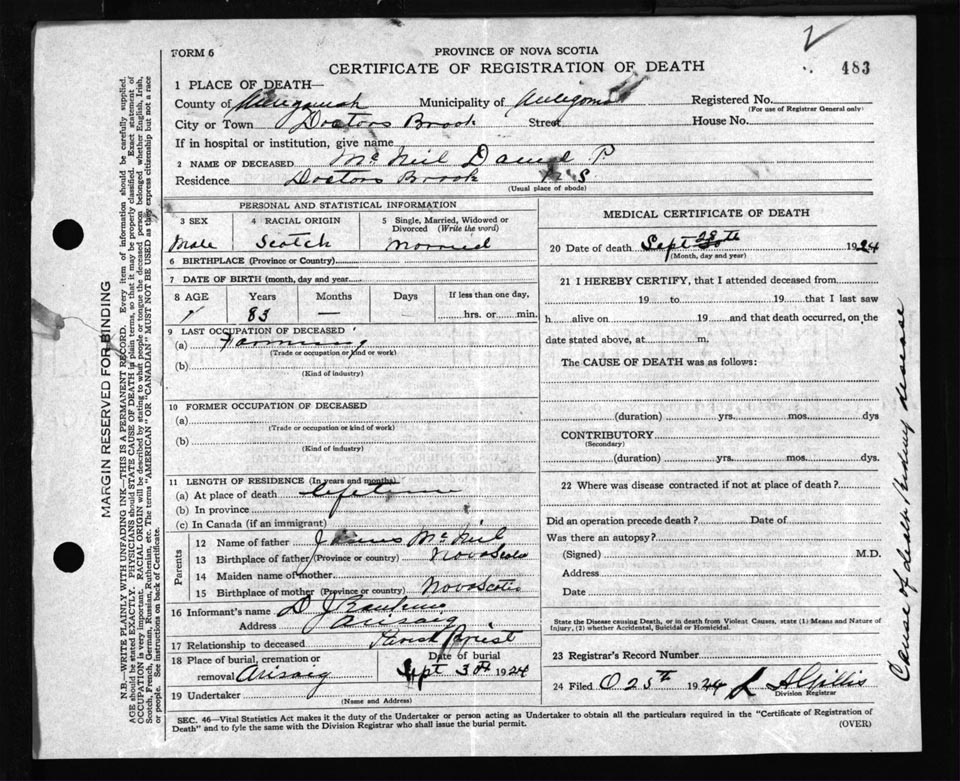 FORM 6
PROVINCE OF NOVA SCOTIA
CERTIFICATE OF REGISTRATION OF DEATH
483
1 PLACE OF DEATH—
County of Antigonish Municipality of Antigonish Registered No.
(For use of Registrar General only)
City or Town Doctors Brook Street House No.
If in hospital or institution, give name
2 NAME OF DECEASED McNeil Daniel P
Residence Doctors Brook N S
(Usual place of abode)
PERSONAL AND STATISTICAL INFORMATION
3 SEX 4 RACIAL ORIGIN 5 Single, Married, Widowed or Divorced (Write the word)
Male Scotch Married
6 BIRTHPLACE (Province or Country)
7 DATE OF BIRTH (month, day and year
8 AGE Years Months Days If less than one day,
83 — hrs. or min.
9 LAST OCCUPATION OF DECEASED
(a) Farming
(Trade or occupation or kind or work)
(b)
(Kind of industry)
10 FORMER OCCUPATION OF DECEASED
(a)
(Trade or occupation or kind of work)
(b)
(Kind of industry)
11 LENGTH OF RESIDENCE (In years and months)
(a) At place of death lifetime
(b) In province
(c) In Canada (if an immigrant)
Parents
12 Name of father James McNeil
13 Birthplace of father (Province or country) Nova Scotia
14 Maiden name of mother
15 Birthplace of mother (Province or country) Nova Scotia
16 Informant's name D J
Address Arisaig
17 Relationship to deceased Parish Priest
18 Place of burial, cremation or removal Arisaig Date of burial Sept 30th 1924
19 Undertaker
(Name and Address)
MEDICAL CERTIFICATE OF DEATH
20 Date of death Sept 1924
(Month, day and year)
21 I HEREBY CERTIFY, that I attended deceased from
19 to 19 that I last saw
h alive on 19 and that death occurred, on the
date stated above, at m.
The CAUSE OF DEATH was as follows:
(duration) yrs. mos. dys
CONTRIBUTORY
(Secondary)
(duration) yrs. mos. dys.
22 Where was disease contracted if not at place of death?
Did an operation precede death? Date of
Was there an autopsy?
(Signed) M.D.
Address
Date
State the Disease causing Death, or in death from Violent Causes, state (1) Means and Nature of
Injury, (2) whether Accidental, Suicidal or Homicidal.
23 Registrar's Record Number
24 Filed O 25th 1924 L A Gillis
Division Registrar
SEC. 46—Vital Statistics Act makes it the duty of the Undertaker or person acting as Undertaker to obtain all the particulars required in the "Certificate of Registration of
Death" and to fyle the same with the Division Registrar who shall issue the burial permit.
(OVER)
MARGIN RESERVED FOR BINDING
N.B.—WRITE PLAINLY WITH UNFADING INK—THIS IS A PERMANENT RECORD. Every item of information should be carefully supplied.
AGE should be stated EXACTLY. PHYSICIANS should STATE CAUSE OF DEATH in plain terms, so that it may be properly classified. Exact statement of
OCCUPATION is very important. RACIAL ORIGIN will be described by stating to what people or tongue the deceased person belonged whether English, Irish,
Scotch, French, German, Russian, Ruthenian, etc. The terms "AMERICAN" OR "CANADIAN" MUST NOT BE USED as they express citizenship but not a race
or people. See instructions on back of Certificate.
Cause of death Kidney disease